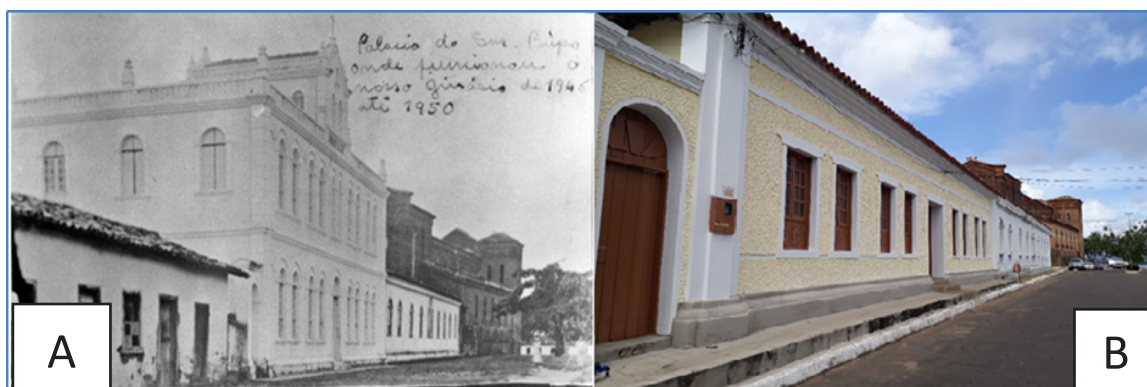 Palacio do Snr. Bispo
onde funcionou o
nosso ginásio de 1946
até 1950
A
B